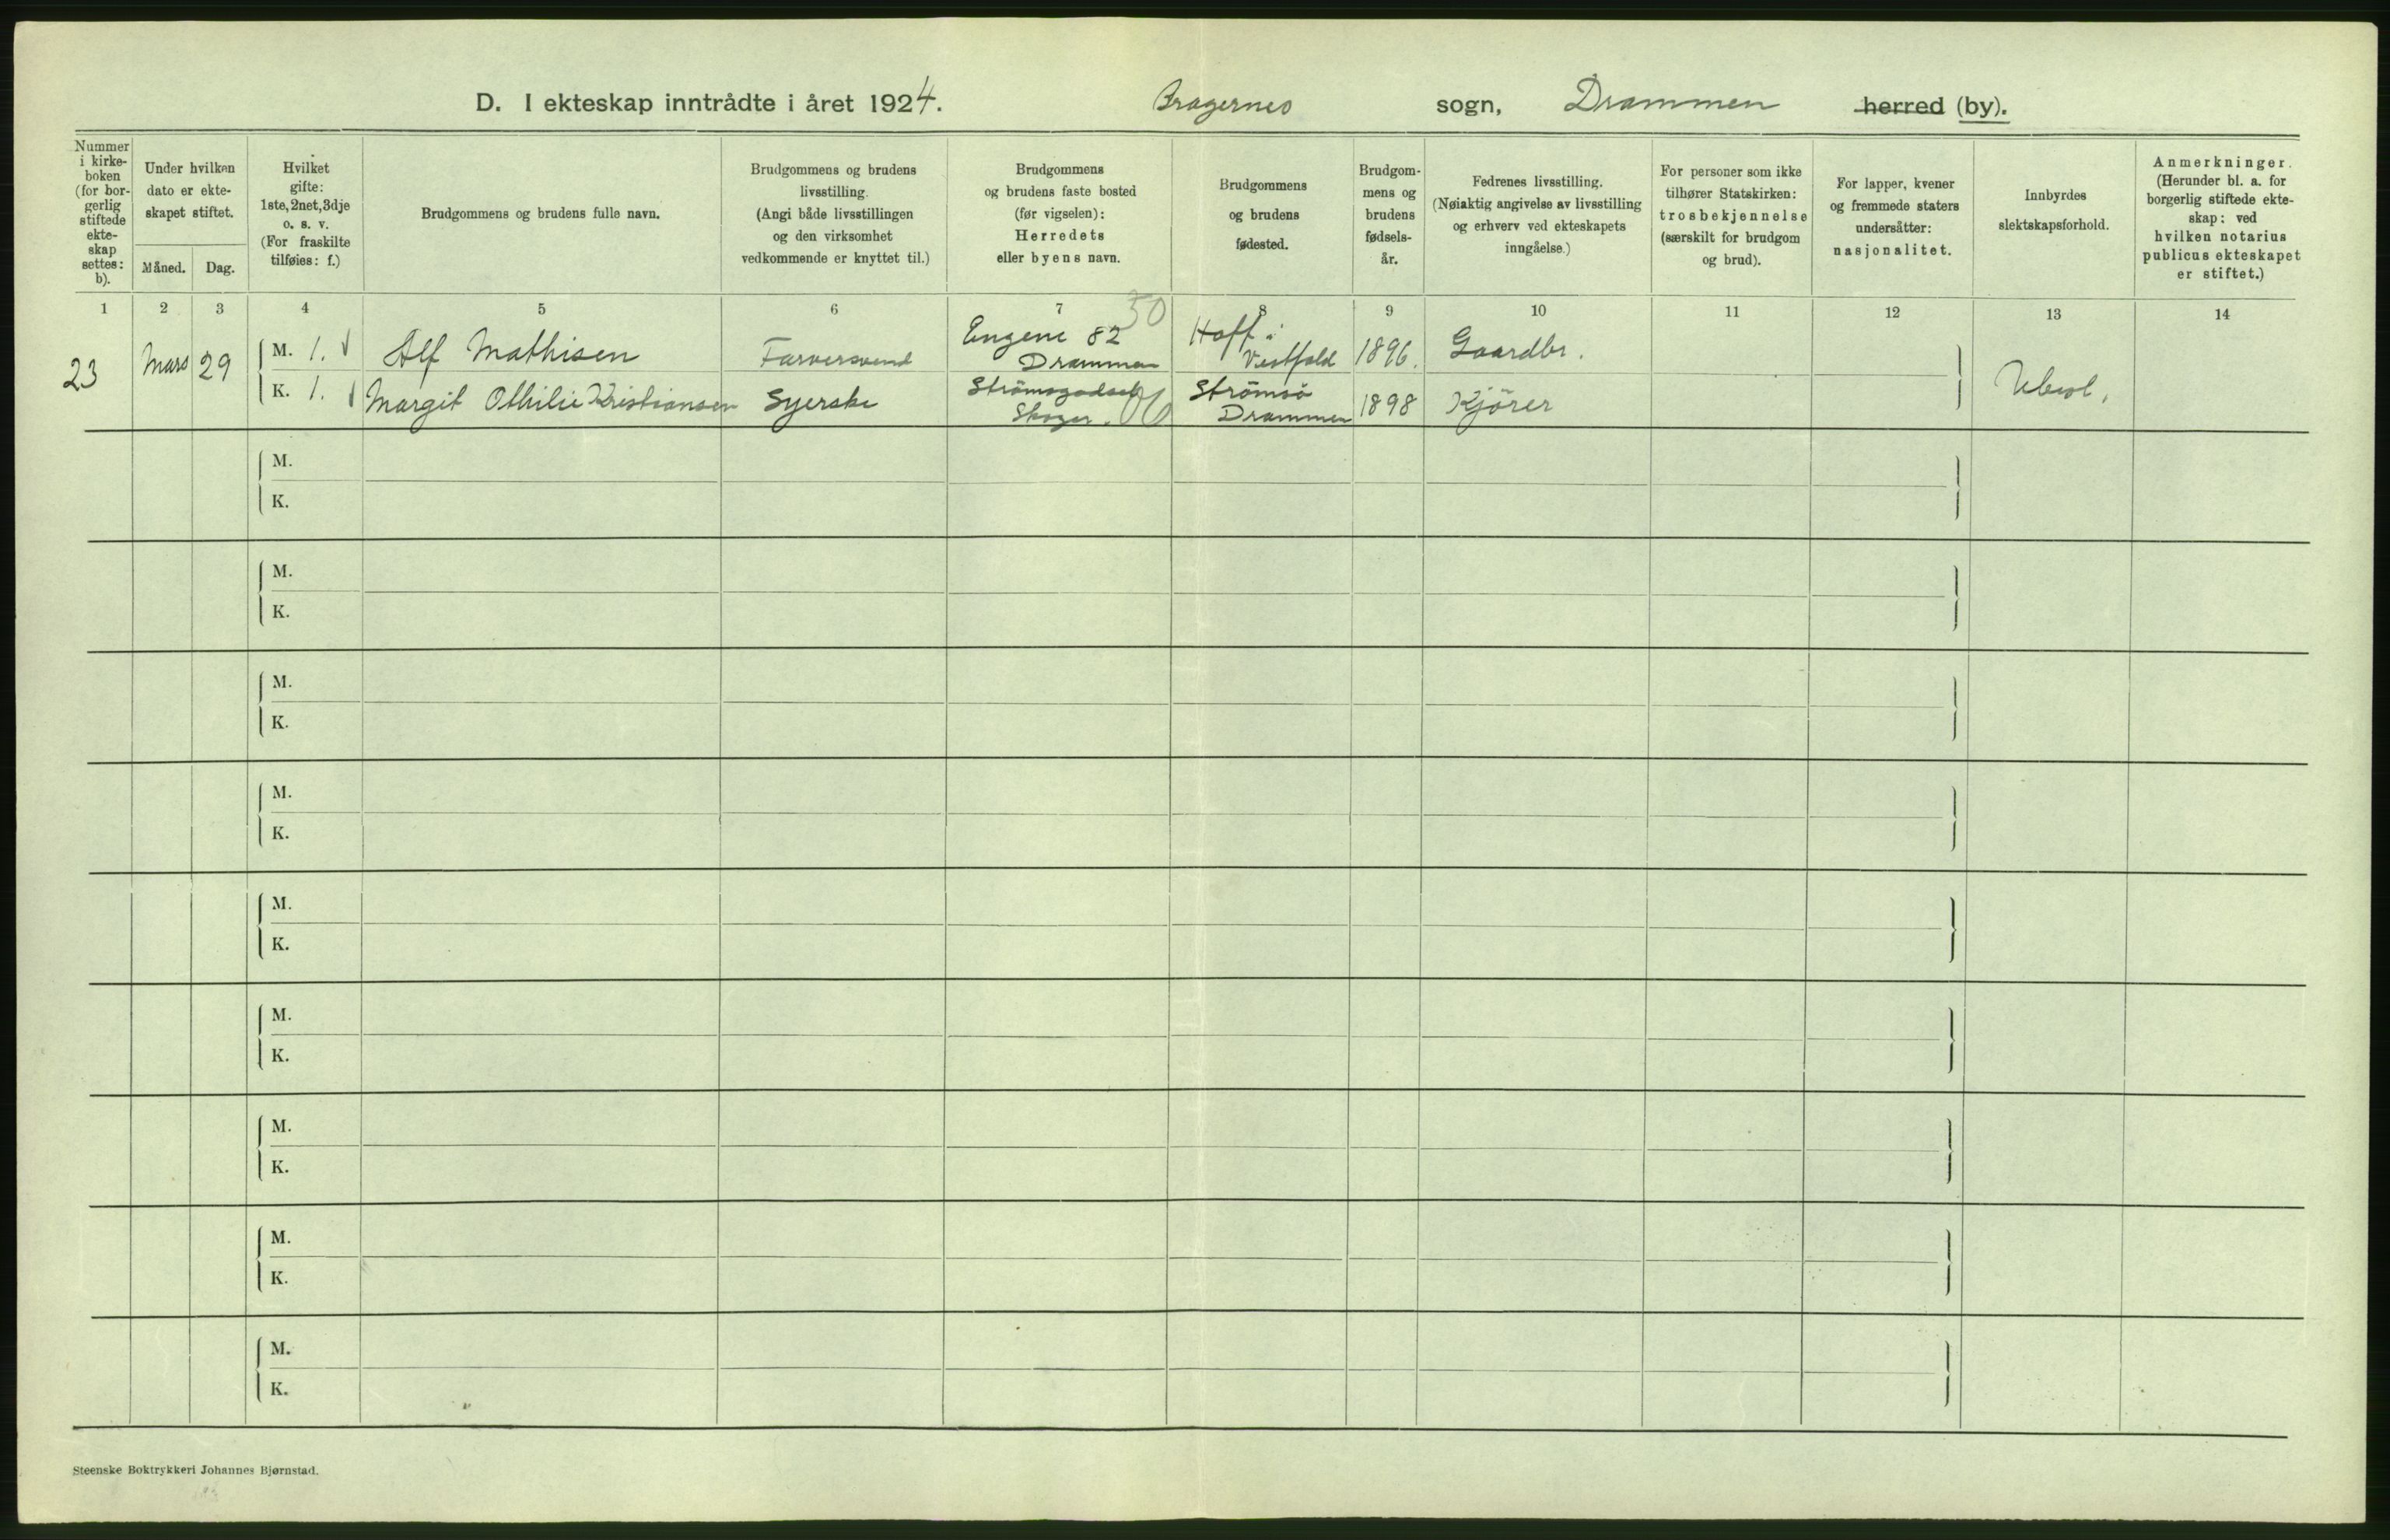 D. I ekteskap inntrådte i året 1924. Bragernes sogn, Drammen herred (by).
Nummer
i kirke-
boken
(for bor-
gerlig
stiftede
ekte-
skap
settes:
b).
Under hvilken
dato er ekte-
skapet stiftet.
Måned. Dag.
Hvilket
gifte:
1ste, 2net, 3dje
o. s. v.
(For fraskilte
tilføies: f.)
Brudgommens og brudens fulle navn.
Brudgommens og brudens
livsstilling.
(Angi både livsstillingen
og den virksomhet
vedkommende er knyttet til.)
Brudgommens
og brudens faste bosted
(før vigselen):
Herredets
eller byens navn.
Brudgommens
og brudens
fødested.
Brudgom-
mens og
brudens
fødsels-
år.
Fedrenes livsstilling.
(Nøiaktig angivelse av livsstilling
og erhverv ved ekteskapets
inngåelse.)
For personer som ikke
tilhører Statskirken:
trosbekjennelse
(særskilt for brudgom
og brud).
For lapper, kvener
og fremmede staters
undersåtter:
nasjonalitet.
Innbyrdes
slektskapsforhold.
Anmerkninger.
(Herunder bl. a. for
borgerlig stiftede ekte-
skap: ved
hvilken notarius
publicus ekteskapet
er stiftet.)
1 2 3 4 5 6 7 8 9 10 11 12 13 14
50
23 Mars 29
M. 1. Alf Mathisen Farversvend Engene 82
Drammen
Hoff i
Vestfold
1896. Gaardbr.
K. 1. Margit Othilie Kristiansen Syerske
Skoger.
Strömsö
Drammen
1898 Kjörer
Ubesl.
M.
K.
M.
K.
M.
K.
M.
K.
M.
K.
M.
K.
M.
K.
M.
K.
M.
K.
Steenske Boktrykkeri Johannes Bjørnstad.